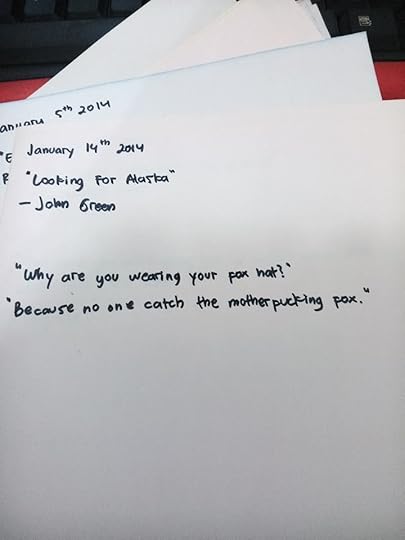 January 5th 2014
January 14th 2014
"Looking For Alaska"
- John Green
"Why are you wearing your fox hat?"
"Because no one catch the motherfucking fox."